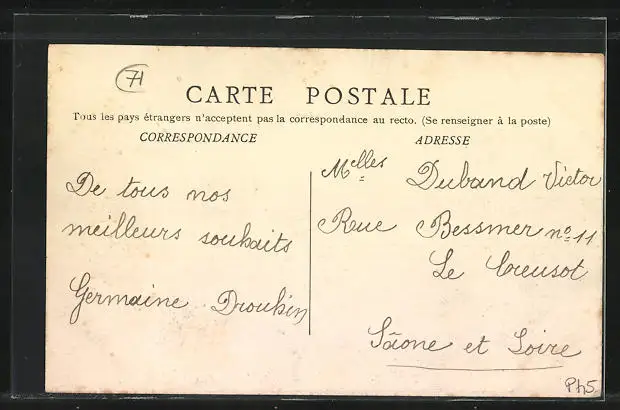 71
CARTE POSTALE
Tous les pays étrangers n'acceptent pas la correspondance au recto. (Se renseigner à la poste)
CORRESPONDANCE
De tous nos
meilleurs souhaits
Germaine Drouhin
ADRESSE
Melles Duband Victor
Rue Bessmer no 11
Le Creusot
Saône et Loire